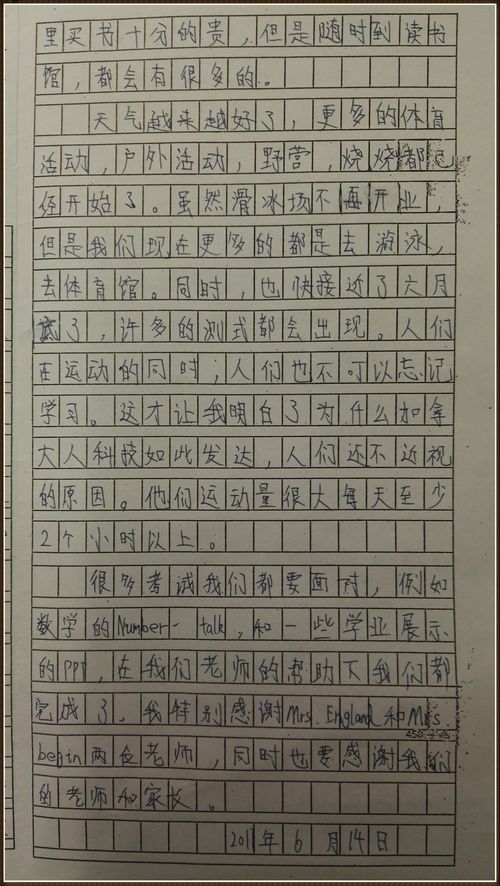 里买书十分的贵，但是随时到读书
馆，都会有很多的。
天气越来越好了，更多的体育
活动，户外活动，野营，烧烤都已
经开始了。虽然滑冰场不再开业，
但是我们现在更多的都是去游泳，
去体育馆。同时，也快接近了六月
底了，许多的测式都会出现。人们
在运动的同时，人们也不可以忘记
学习。这才让我明白了为什么加拿
大人科技如此发达，人们还不近视
的原因。他们运动量很大每天至少
2个小时以上。
很多考试我们都要面对，例如
数学的Number-talk，和一些学业展示
的PPT，在我们老师的帮助下我们都
完成了。我特别感谢Mrs.England和Mrs.
begin两位老师，同时也要感谢我们
的老师和家长。
2011年6月14日